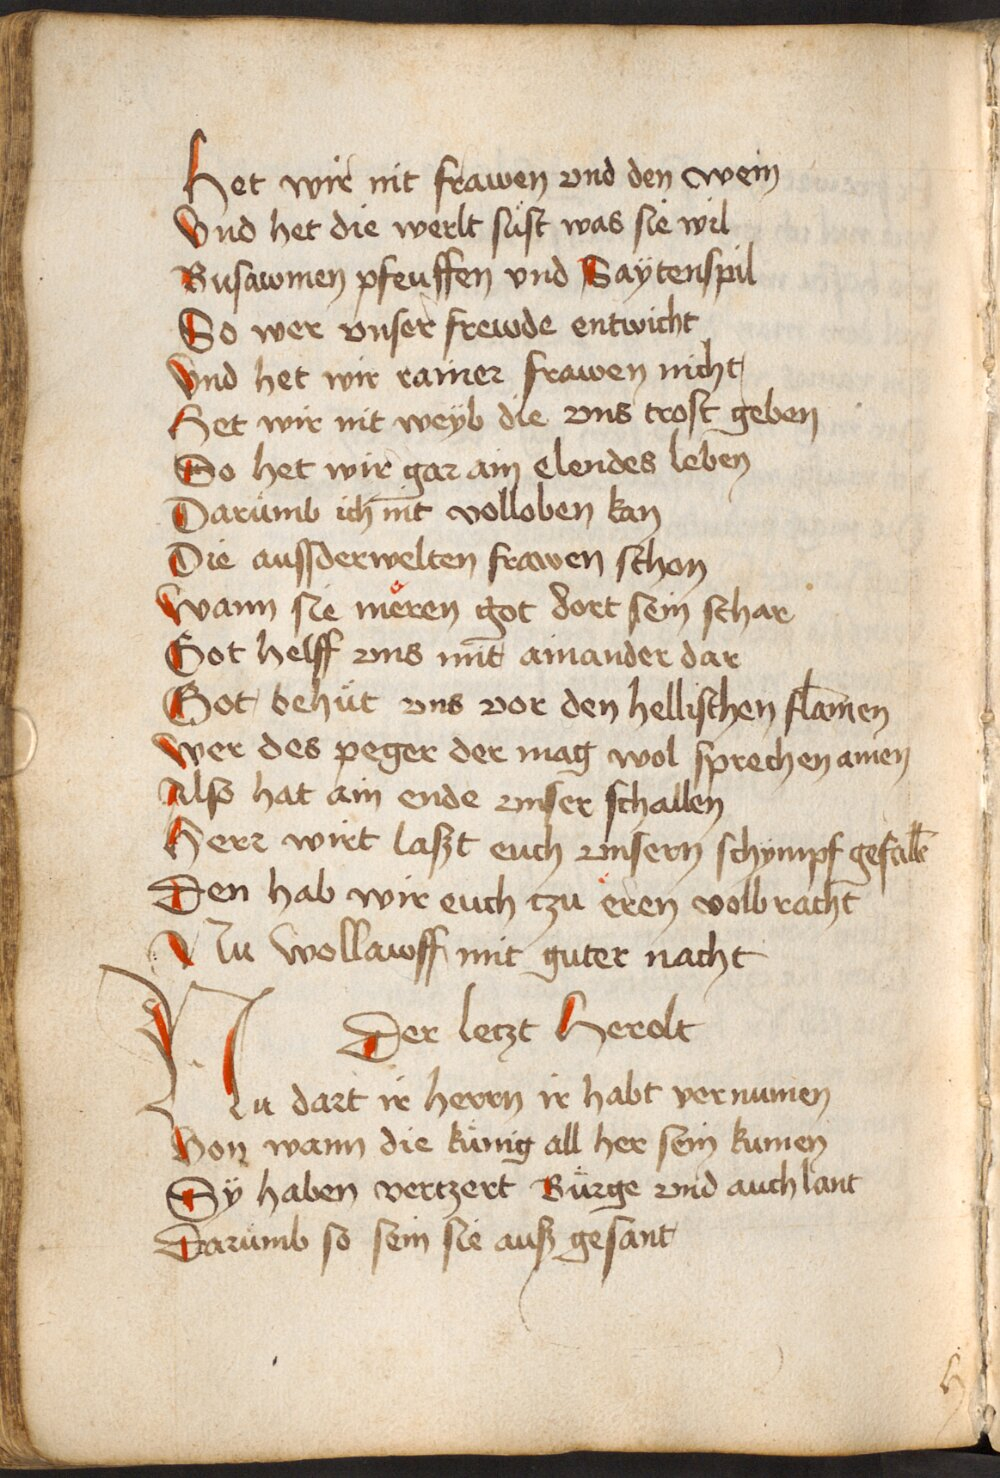 Het wir nit frawen vnd den wein
Vnd het die werlt süst was sie wil
Busawmen pfeuffen vnd Saÿtenspil
So wer vnser frewde entwicht
Vnd het wir rainer frawen nicht
Het wir nit weÿb die vns trost geben
So het wir gar ain elendes leben
Darümb ich nit volloben kan
Die aussderwelten frawen schon
Wann sie meren got dort sein schar
Got helff vns mit ainander dar
Got behüt vns vor den hellischen flamen
Wer des peger der mag wol sprechen amen
Alß hat ain ende vnser schallen
Herr wirt laßt euch vnsern schympf gefallē
Den hab wir euch tzu eren volbracht
Nu wollawff mit guter nacht
Der letzt Herolt
Nu dart ir herrn ir habt vernumen
Von wann die künig all her sein kumen
Sÿ haben vertzert Bürge vnd auch lant
Darümb so sein sie auß gesant